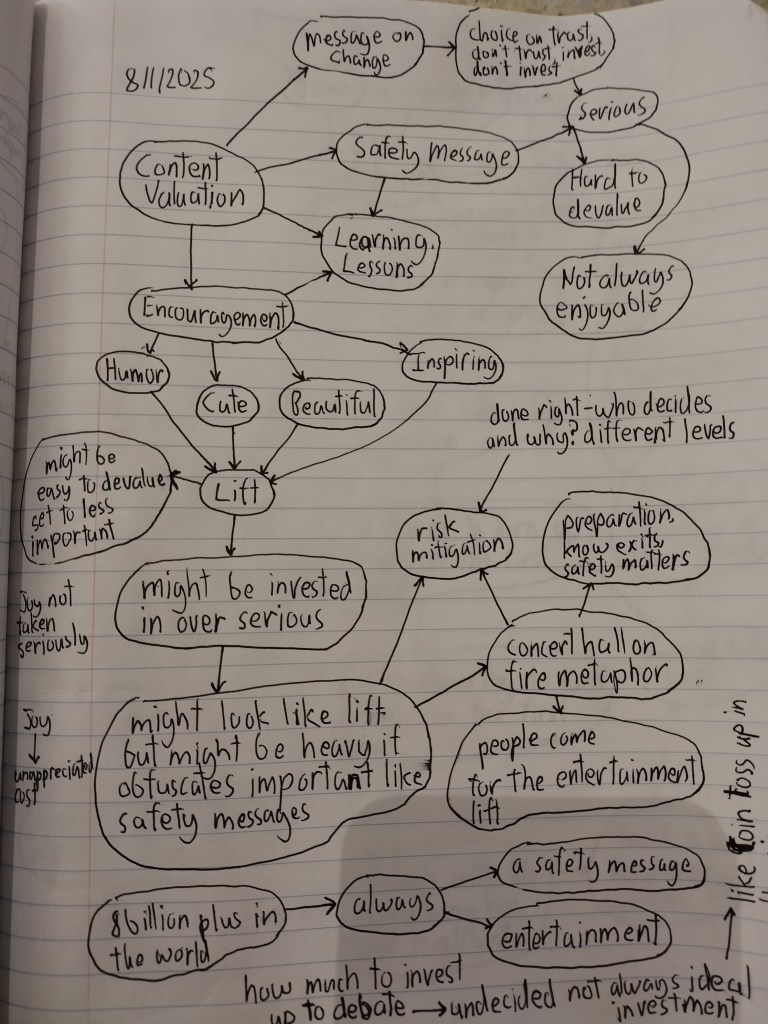 8/11/2025
message on
change
choice on trust,
don't trust, invest,
don't invest
serious
Content
Valuation
Safety Message
Hard to
devalue
Learning
Lessons
Not always
enjoyable
Encouragement
Humor
Cute
Beautiful
Inspiring
done right-who decides
and why? different levels
might be
easy to devalue
set to less
important
Lift
risk
mitigation
preparation,
know exits,
safety matters
Joy not
taken
seriously
might be invested
in over serious
concert hall on
fire metaphor
Joy
unappreciated
cost
might look like lift
but might be heavy if
obfuscates important like
safety messages
people come
for the entertainment
lift
8billion plus in
the world
always
a safety message
entertainment
how much to invest
up to debate → undecided not always ideal
investment
like coin toss up in